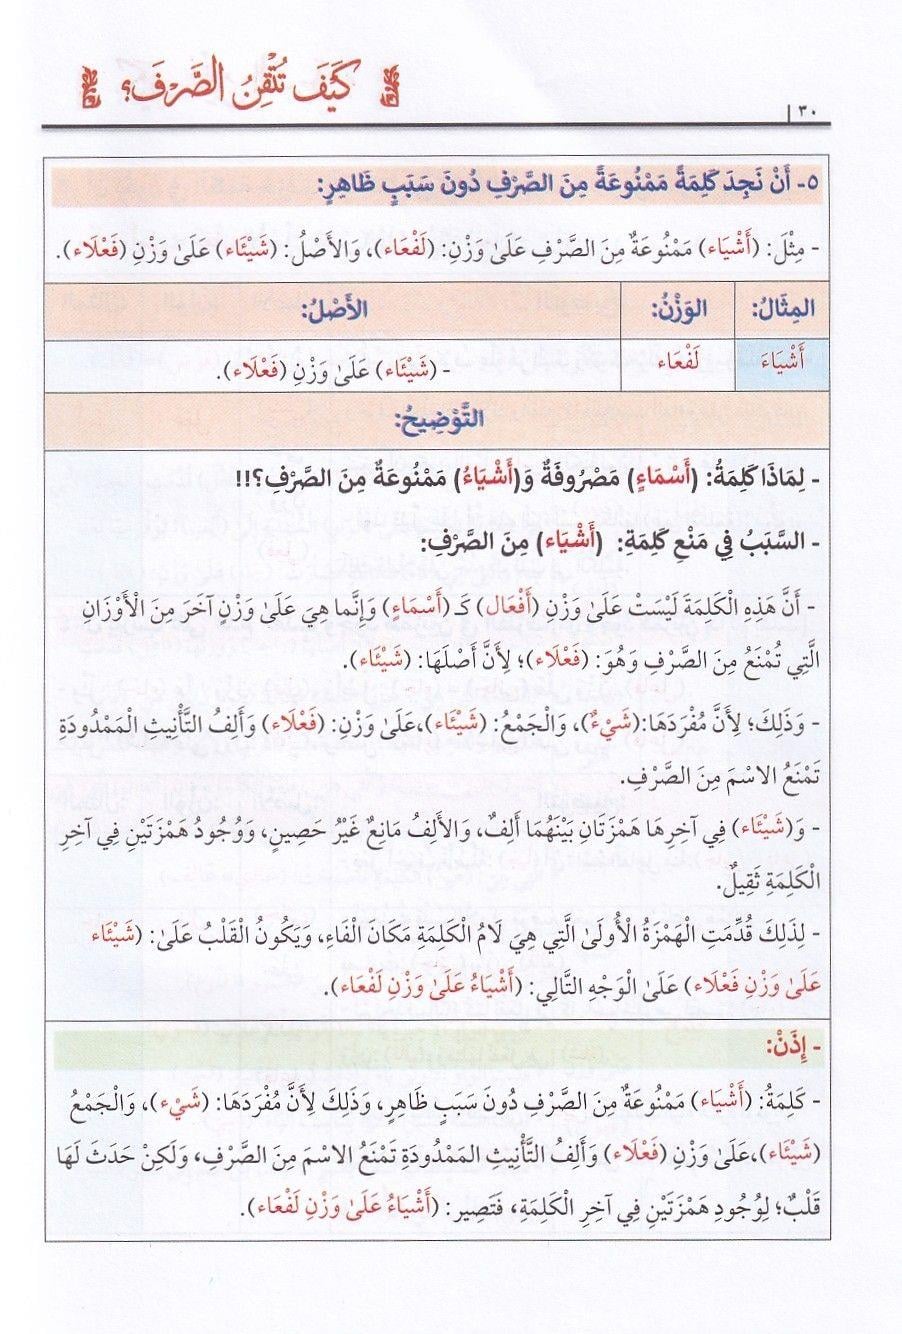 كَيْفَ تُتْقِنُ الصَّرْفَ؟
٣٠ |
٥- أَنْ نَجِدَ كَلِمَةً مَمْنُوعَةً مِنَ الصَّرْفِ دُونَ سَبَبٍ ظَاهِرٍ:
- مِثْلَ: (أَشْيَاء) مَمْنُوعَةٌ مِنَ الصَّرْفِ عَلَىٰ وَزْنِ: (لَفْعَاء)، وَالأَصْلُ: (شَيْئَاء) عَلَىٰ وَزْنِ (فَعْلَاء).
المِثَالُ: الوَزْنُ: الأَصْلُ:
أَشْيَاءَ لَفْعَاء - (شَيْئَاء) عَلَىٰ وَزْنِ (فَعْلَاء).
التَّوْضِيحُ:
- لِمَاذَا كَلِمَةُ: (أَسْمَاءٍ) مَصْرُوفَةٌ وَ(أَشْيَاءُ) مَمْنُوعَةٌ مِنَ الصَّرْفِ؟!!
- السَّبَبُ فِي مَنْعِ كَلِمَة: (أَشْيَاء) مِنَ الصَّرْفِ:
- أَنَّ هَذِهِ الْكَلِمَةَ لَيْسَتْ عَلَىٰ وَزْنِ (أَفْعَال) كَـ (أَسْمَاءٍ) وَإِنَّما هِيَ عَلَىٰ وَزْنٍ آخَرَ مِنَ الْأَوْزَانِ
الَّتِي تُمْنَعُ مِنَ الصَّرْفِ وَهُوَ: (فَعْلَاء)؛ لِأَنَّ أَصْلَهَا: (شَيْئَاء).
- وَذَلِكَ؛ لِأَنَّ مُفْرَدَهَا:(شَيْءٌ)، وَالْجَمْعُ: (شَيْئَاء)،عَلَىٰ وَزْنِ: (فَعْلَاء) وَأَلِفُ التَّأْنِيثِ الْمَمْدُودَةِ
تَمْنَعُ الاسْمَ مِنَ الصَّرْفِ.
- وَ(شَيْئَاء) فِي آخِرِهَا هَمْزَتَانِ بَيْنَهُمَا أَلِفٌ، وَالأَلِفُ مَانِعٌ غَيْرُ حَصِينٍ، وَوُجُودُ هَمْزَتَيْنِ فِي آخِرِ
الْكَلِمَةِ ثَقِيلٌ.
- لِذَلِكَ قُدِّمَتِ الْهَمْزَةُ الْأُولَىٰ الَّتِي هِيَ لَامُ الْكَلِمَةِ مَكَانَ الْفَاءِ، وَيَكُونُ الْقَلْبُ عَلَىٰ: (شَيْئَاء
عَلَىٰ وَزْنِ فَعْلَاء) عَلَىٰ الْوَجْهِ التَّالِي: (أَشْيَاءُ عَلَىٰ وَزْنِ لَفْعَاء).
- إِذَنْ:
- كَلِمَةُ: (أَشْيَاء) مَمْنُوعَةٌ مِنَ الصَّرْفِ دُونَ سَبَبٍ ظَاهِرٍ، وَذَلِكَ لِأَنَّ مُفْرَدَهَا: (شَيْء)، وَالْجَمْعُ
(شَيْئَاء)،عَلَىٰ وَزْنِ (فَعْلَاء) وَأَلِفُ التَّأْنِيثِ المَمْدُودَةِ تَمْنَعُ الاسْمَ مِنَ الصَّرْفِ، وَلَكِنْ حَدَثَ لَهَا
قَلْبٌ؛ لِوُجُودِ هَمْزَتَيْنِ فِي آخِرِ الْكَلِمَةِ، فَتَصِير: (أَشْيَاءُ عَلَىٰ وَزْنِ لَفْعَاء).